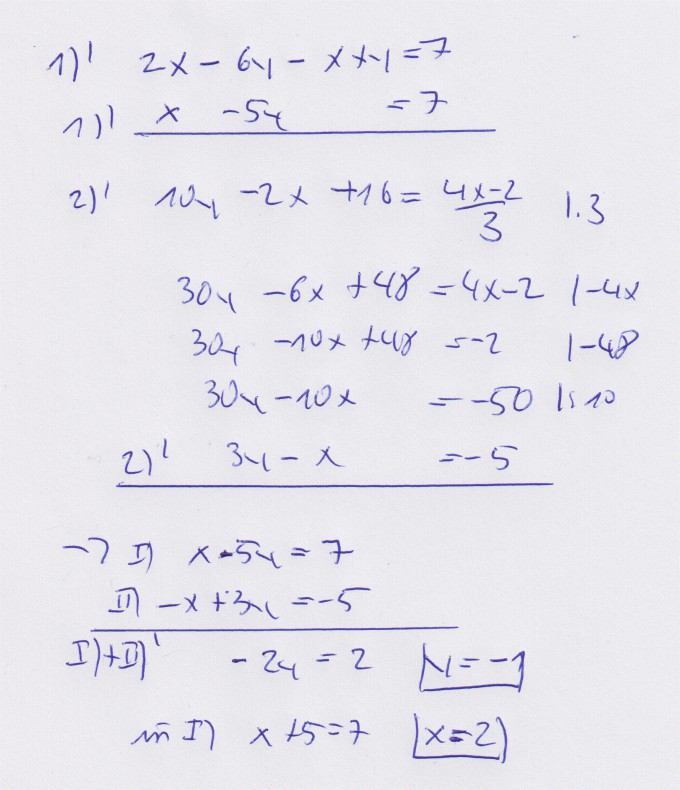 1)' 2x - 6y - x + y = 7
1)' x - 5y = 7
2)' 10y - 2x + 16 = (4x-2)/3 |·3
30y - 6x + 48 = 4x - 2 |-4x
30y - 10x + 48 = -2 |-48
30y - 10x = -50 |:10
2)' 3y - x = -5
→ I) x - 5y = 7
II) -x + 3y = -5
I)+II)' -2y = 2 y = -1
in I) x + 5 = 7 x = 2